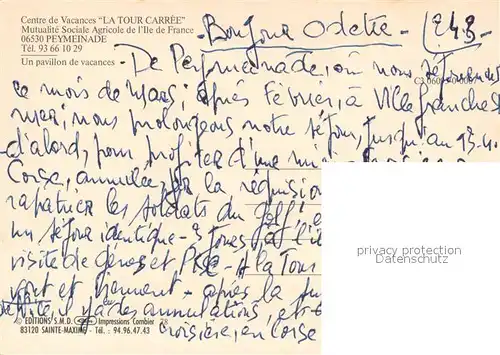 Centre de Vacances "LA TOUR CARRÉE"
Mutualité Sociale Agricole de l'Ile de France
06530 PEYMEINADE
Tél. 93 66 10 29
Un pavillon de vacances
- Bonjour Odette -
- De Peymeinade, où nous séjournons
ce mois de Mars; après Février, à Villefranche s/
mer; nous prolongeons notre séjour, jusqu'au
d'abord, pour profiter d'une mini
Corse, annulée, par la réquisition
rapatrier les soldats du Golfe
un séjour identique - 3 jours, à l'île
visite de Gènes et Pise - A la Tour
vont et viennent - après la
il y a eu des annulations, et
croisière, en Corse
© EDITIONS S.M.D. Impressions Combier
83120 SAINTE-MAXIME - Tél. : 94.96.47.43
privacy protection
Datenschutz